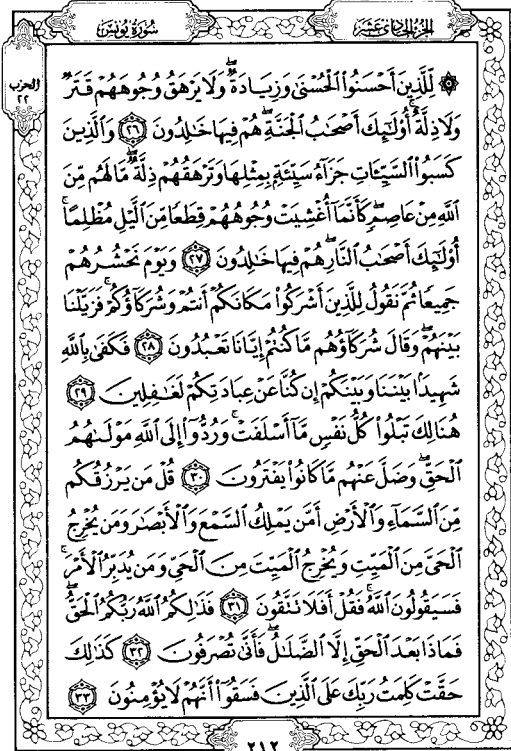 سُورَةُ يُونُسَ
الجزء الحادي عشر
الحزب
٢٢
۞ لِّلَّذِينَ أَحْسَنُوا۟ ٱلْحُسْنَىٰ وَزِيَادَةٌ ۖ وَلَا يَرْهَقُ وُجُوهَهُمْ قَتَرٌ
وَلَا ذِلَّةٌ ۚ أُو۟لَٰٓئِكَ أَصْحَٰبُ ٱلْجَنَّةِ ۖ هُمْ فِيهَا خَٰلِدُونَ ٢٦ وَٱلَّذِينَ
كَسَبُوا۟ ٱلسَّيِّـَٔاتِ جَزَآءُ سَيِّئَةٍۭ بِمِثْلِهَا وَتَرْهَقُهُمْ ذِلَّةٌ ۖ مَّا لَهُم مِّنَ
ٱللَّهِ مِنْ عَاصِمٍ ۖ كَأَنَّمَآ أُغْشِيَتْ وُجُوهُهُمْ قِطَعًا مِّنَ ٱلَّيْلِ مُظْلِمًا ۚ
أُو۟لَٰٓئِكَ أَصْحَٰبُ ٱلنَّارِ ۖ هُمْ فِيهَا خَٰلِدُونَ ٢٧ وَيَوْمَ نَحْشُرُهُمْ
جَمِيعًا ثُمَّ نَقُولُ لِلَّذِينَ أَشْرَكُوا۟ مَكَانَكُمْ أَنتُمْ وَشُرَكَآؤُكُمْ ۚ فَزَيَّلْنَا
بَيْنَهُمْ ۖ وَقَالَ شُرَكَآؤُهُم مَّا كُنتُمْ إِيَّانَا تَعْبُدُونَ ٢٨ فَكَفَىٰ بِٱللَّهِ
شَهِيدًۢا بَيْنَنَا وَبَيْنَكُمْ إِن كُنَّا عَنْ عِبَادَتِكُمْ لَغَٰفِلِينَ ٢٩
هُنَالِكَ تَبْلُوا۟ كُلُّ نَفْسٍ مَّآ أَسْلَفَتْ ۚ وَرُدُّوٓا۟ إِلَى ٱللَّهِ مَوْلَىٰهُمُ
ٱلْحَقِّ ۖ وَضَلَّ عَنْهُم مَّا كَانُوا۟ يَفْتَرُونَ ٣٠ قُلْ مَن يَرْزُقُكُم
مِّنَ ٱلسَّمَآءِ وَٱلْأَرْضِ أَمَّن يَمْلِكُ ٱلسَّمْعَ وَٱلْأَبْصَٰرَ وَمَن يُخْرِجُ
ٱلْحَىَّ مِنَ ٱلْمَيِّتِ وَيُخْرِجُ ٱلْمَيِّتَ مِنَ ٱلْحَىِّ وَمَن يُدَبِّرُ ٱلْأَمْرَ ۚ
فَسَيَقُولُونَ ٱللَّهُ ۚ فَقُلْ أَفَلَا تَتَّقُونَ ٣١ فَذَٰلِكُمُ ٱللَّهُ رَبُّكُمُ ٱلْحَقُّ ۖ
فَمَاذَا بَعْدَ ٱلْحَقِّ إِلَّا ٱلضَّلَٰلُ ۖ فَأَنَّىٰ تُصْرَفُونَ ٣٢ كَذَٰلِكَ
حَقَّتْ كَلِمَتُ رَبِّكَ عَلَى ٱلَّذِينَ فَسَقُوٓا۟ أَنَّهُمْ لَا يُؤْمِنُونَ ٣٣
٢١٢